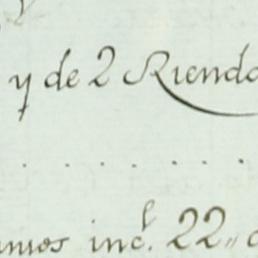 y de 2 Riendo
. . . . . . . .
amos incl. 22,, d